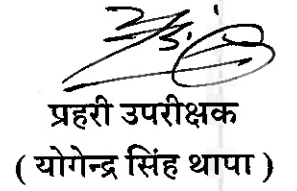 प्रहरी उपरीक्षक
( योगेन्द्र सिंह थापा )